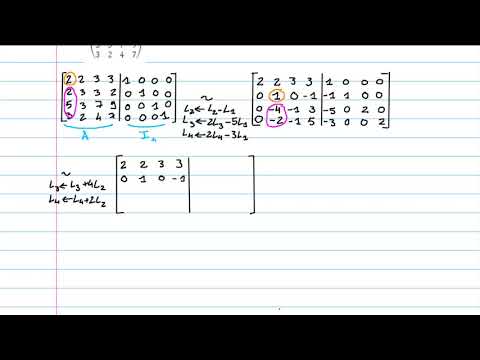 3 2 4 7
2 2 3 3 | 1 0 0 0
2 3 3 2 | 0 1 0 0
5 3 7 9 | 0 0 1 0
3 2 4 7 | 0 0 0 1
A I₄
~
L₂←L₂-L₁
L₃←2L₃-5L₁
L₄←2L₄-3L₁
2 2 3 3 | 1 0 0 0
0 1 0 -1 | -1 1 0 0
0 -4 -1 3 | -5 0 2 0
0 -2 -1 5 | -3 0 0 2
~
L₃←L₃+4L₂
L₄←L₄+2L₂
2 2 3 3
0 1 0 -1